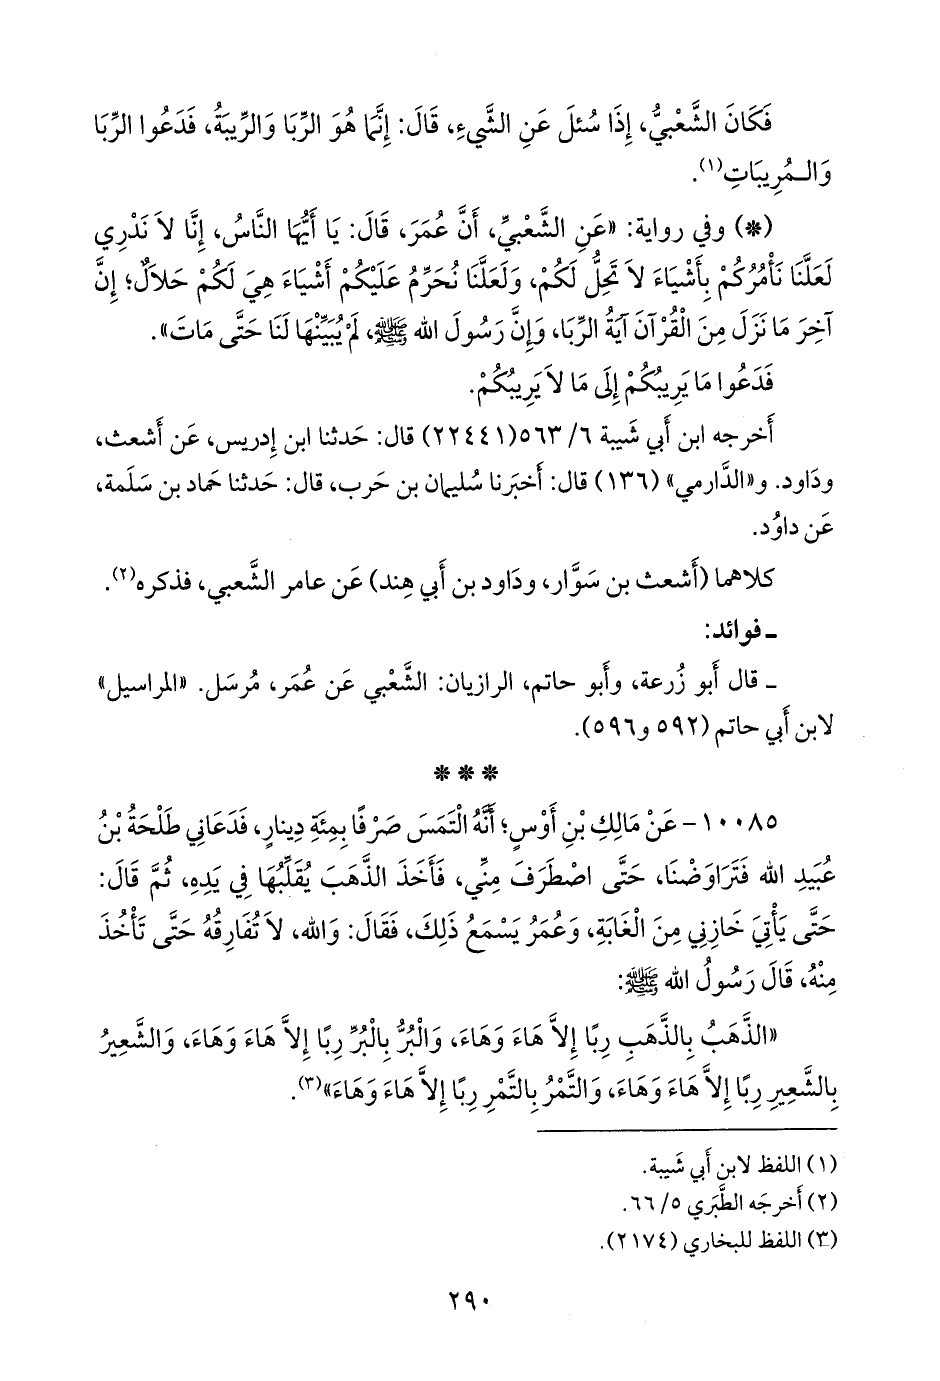 فَكَانَ الشَّعْبيُّ، إِذَا سُئلَ عَنِ الشَّيءِ، قَالَ: إِنَّمَا هُوَ الرِّبَا وَالرِّيبَةُ، فَدَعُوا الرِّبَا
وَالـمُرِيبَاتِ(١).
(*) وفي رواية: «عَنِ الشَّعْبيِّ، أَنَّ عُمَرَ، قَالَ: يَا أَيُّهَا النَّاسُ، إِنَّا لاَ نَدْرِي
لَعَلَّنَا نَأْمُرُكُمْ بِأَشْيَاءَ لاَ تَحِلُّ لَكُمْ، وَلَعَلَّنَا نُحَرِّمُ عَلَيْكُمْ أَشْيَاءَ هِيَ لَكُمْ حَلاَلٌ؛ إِنَّ
آخِرَ مَا نَزَلَ مِنَ الْقُرْآنَ آيَةُ الرِّبَا، وَإِنَّ رَسُولَ الله ﷺ، لَمْ يُبَيِّنْهَا لَنَا حَتَّى مَاتَ».
فَدَعُوا مَا يَرِيبُكُمْ إِلَى مَا لاَ يَرِيبُكُمْ.
أَخرجه ابن أَبي شَيبة ٦/ ٥٦٣(٢٢٤٤١) قال: حَدثنا ابن إِدريس، عَن أَشعث،
ودَاود. و«الدَّارمي» (١٣٦) قال: أَخبَرنا سُليمان بن حَرب، قال: حَدثنا حَماد بن سَلَمة،
عَن داوُد.
كلاهما (أَشعث بن سَوَّار، ودَاود بن أَبي هِند) عَن عامر الشَّعبي، فذكره(٢).
ـ فوائد:
ـ قال أَبو زُرعة، وأَبو حاتم، الرازيان: الشَّعْبي عَن عُمَر، مُرسَل. «المراسيل»
لابن أَبي حاتم (٥٩٢ و٥٩٦).
* * *
١٠٠٨٥- عَنْ مَالِكِ بْنِ أَوْسٍ؛ أَنَّهُ الْتَمَسَ صَرْفًا بِمِئَةِ دِينَارٍ، فَدَعَانِي طَلْحَةُ بْنُ
عُبَيدِ الله فَتَرَاوَضْنَا، حَتَّى اصْطَرَفَ مِنِّي، فَأَخَذَ الذَّهَبَ يُقَلِّبُهَا فِي يَدِهِ، ثُمَّ قَالَ:
حَتَّى يَأْتِيَ خَازِنِي مِنَ الْغَابَةِ، وَعُمَرُ يَسْمَعُ ذَلِكَ، فَقَالَ: وَالله، لاَ تُفَارِقُهُ حَتَّى تَأْخُذَ
مِنْهُ، قَالَ رَسُولُ الله ﷺ:
«الذَّهَبُ بِالذَّهَبِ رِبًا إِلاَّ هَاءَ وَهَاءَ، وَالْبُرُّ بِالْبُرِّ رِبًا إِلاَّ هَاءَ وَهَاءَ، وَالشَّعِيرُ
بِالشَّعِيرِ رِبًا إِلاَّ هَاءَ وَهَاءَ، وَالتَّمْرُ بِالتَّمْرِ رِبًا إِلاَّ هَاءَ وَهَاءَ»(٣).
(١) اللفظ لابن أَبي شَيبة.
(٢) أَخرجَه الطَّبَري ٥/ ٦٦.
(٣) اللفظ للبخاري (٢١٧٤).
٢٩٠